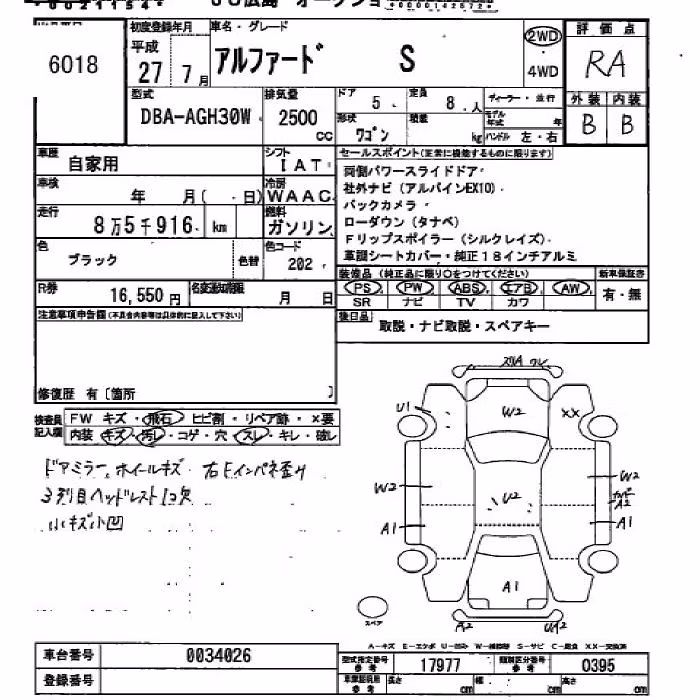 JU広島 オークション
6018
初度登録年月 車名・グレード
平成 27 7月 アルファード S
2WD
4WD
評価点
RA
外装 内装
B B
型式 DBA-AGH30W
排気量 2500 CC
ドア 5
定員 8人
ディーラー・並行
形状 ワゴン
積載 kg
モデル年式 年
ハンドル 左・右
車歴 自家用
シフト IAT
車検 年 月( ・ 日)
冷房 WAAC
走行 8万5千916 km
燃料 ガソリン
色 ブラック 色替
色コード 202
R券 16,550円
名変期限 月 日
セールスポイント(正常に機能するものに限ります)
両側パワースライドドア
社外ナビ(アルパインEX10)
バックカメラ
ローダウン(タナベ)
Fリップスポイラー(シルクレイズ)
革調シートカバー・純正18インチアルミ
装備品(純正品に限り○をつけてください) 新車保証書
PS PW ABS エアB AW 有・無
SR ナビ TV カワ
後日品
取説・ナビ取説・スペアキー
注意事項申告欄(不具合内容等は具体的に記入して下さい)
修復歴 有〔箇所 〕
検査員記入欄
FW キズ・飛石・ヒビ割・リペア跡・×要
内装 キズ・汚レ・コゲ・穴・スレ・キレ・破レ
ドアミラー、ホイールキズ 右Eインパネ歪ハ
3列目ヘッドレスト1コ欠
小キズ小凹
スリA ワレ
U1
W2
XX
W2
U2
W2
カバー
A2
A1
A1
A1
A2
UA2
スペア
A-キズ E-エクボ U-凹ミ W-補修跡 S-サビ C-腐食 XX-交換済
車台番号 0034026
登録番号
型式指定番号 参考 17977
類別区分番号 参考 0395
長さ cm
幅 cm
高さ cm